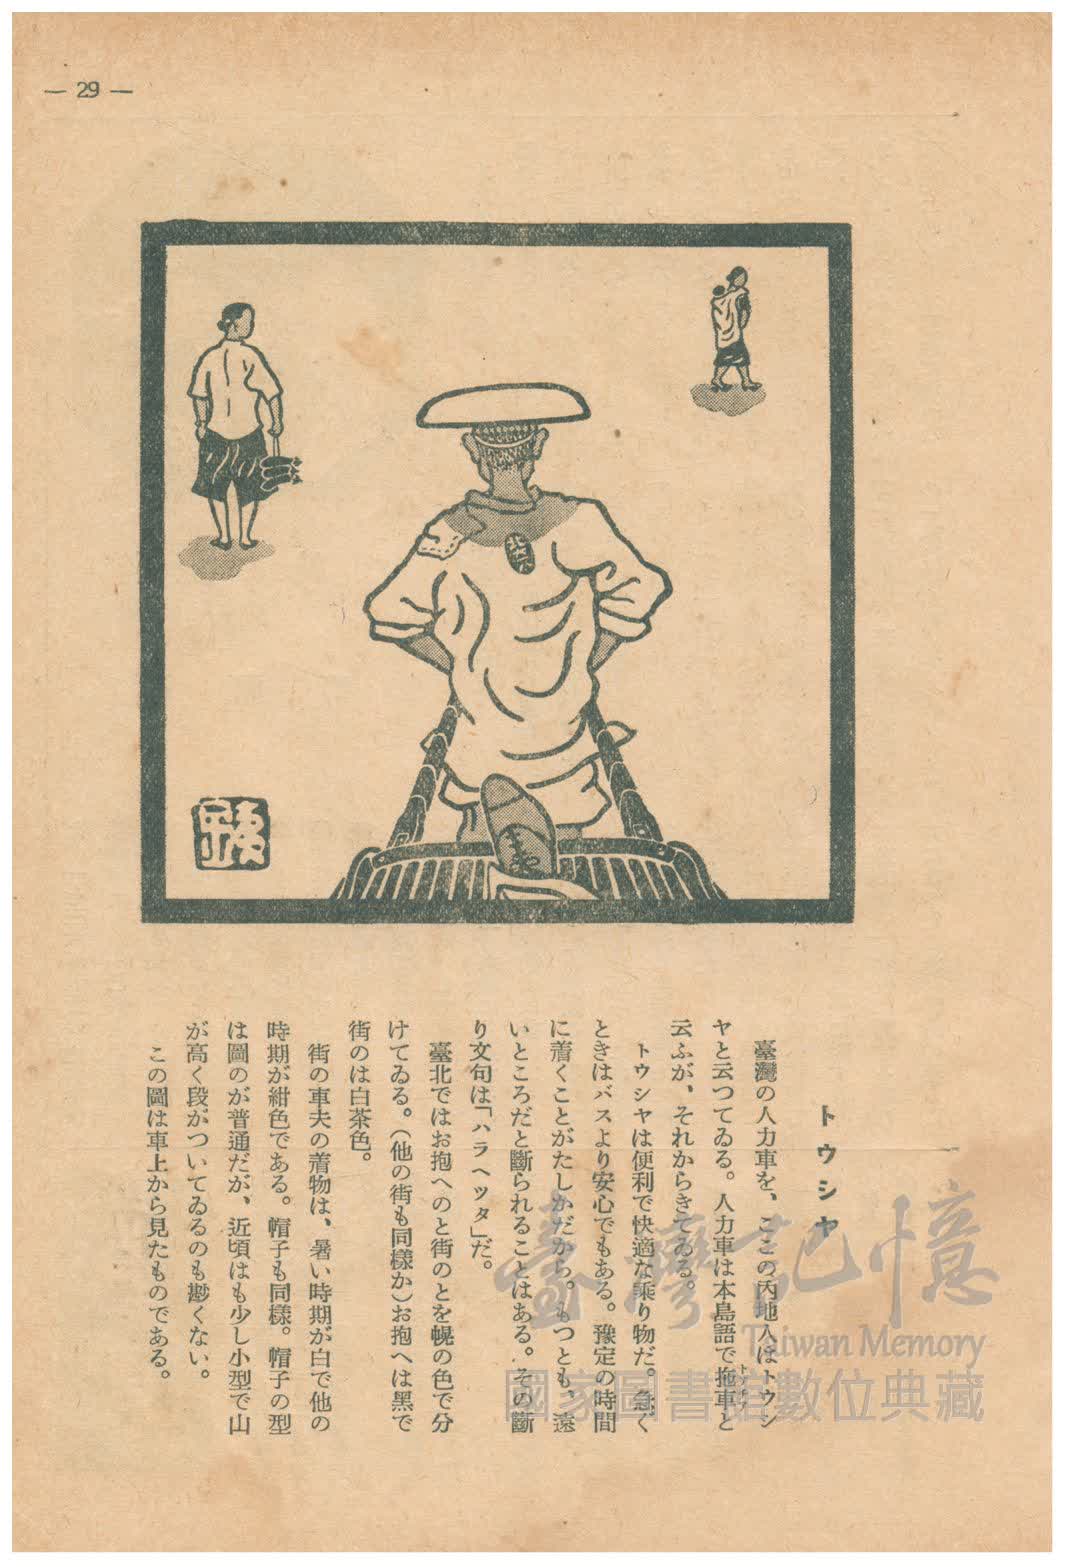 — 29 —
トウシヤ
臺灣の人力車を、ここの內地人はトウシ
ヤと云つてゐる。人力車は本島語で拖車と
云ふが、それからきてゐる。
トウシヤは便利で快適な乘り物だ。急ぐ
ときはバスより安心でもある。豫定の時間
に着くことがたしかだから。もつとも、遠
いところだと斷られることはある。その斷
り文句は「ハラヘツタ」だ。
臺北ではお抱へのと街のとを幌の色で分
けてゐる。（他の街も同樣か）お抱へは黑で
街のは白茶色。
街の車夫の着物は、暑い時期が白で他の
時期が紺色である。帽子も同樣。帽子の型
は圖のが普通だが、近頃はも少し小型で山
が高く段がついてゐるのも尠くない。
この圖は車上から見たものである。
臺灣記憶
Taiwan Memory
國家圖書館數位典藏